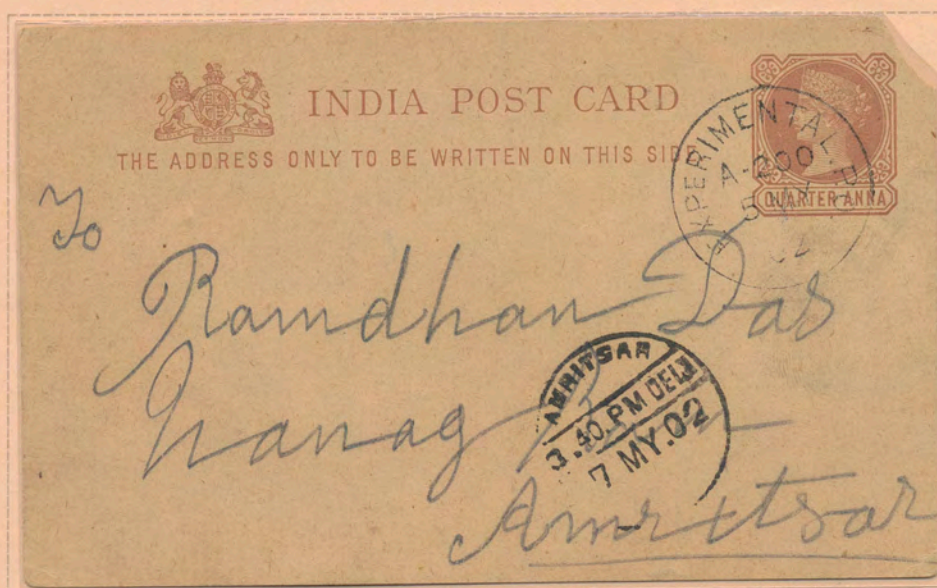 INDIA POST CARD
THE ADDRESS ONLY TO BE WRITTEN ON THIS SIDE
QUARTER ANNA
EXPERIMENTAL P.O.
A-200
5 MY
02
To
Ramdhan Das
Nanag
AMRITSAR
3.40.PM DELY
7 MY.02
Amritsar